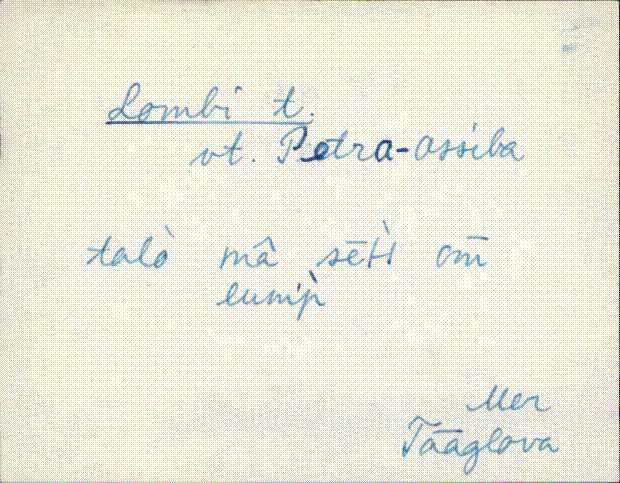 Lombi t.
vt. Petra-Ossiba
talò mâ sēt̀i om̄
lumìp̀
Mer
Tāäglova